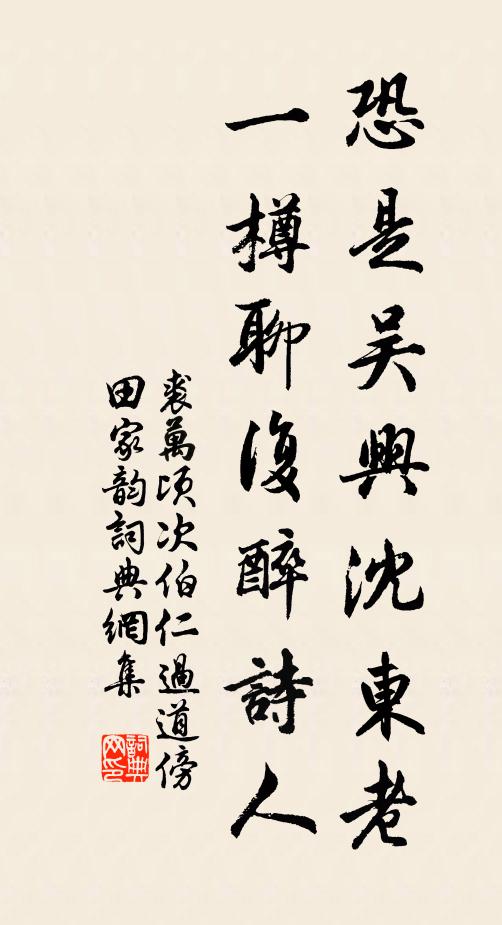 恐是吴興沈東老
一樽聊復醉詩人
裘萬頃次伯仁過道傍
田家韵詞典網集
詞典
网印